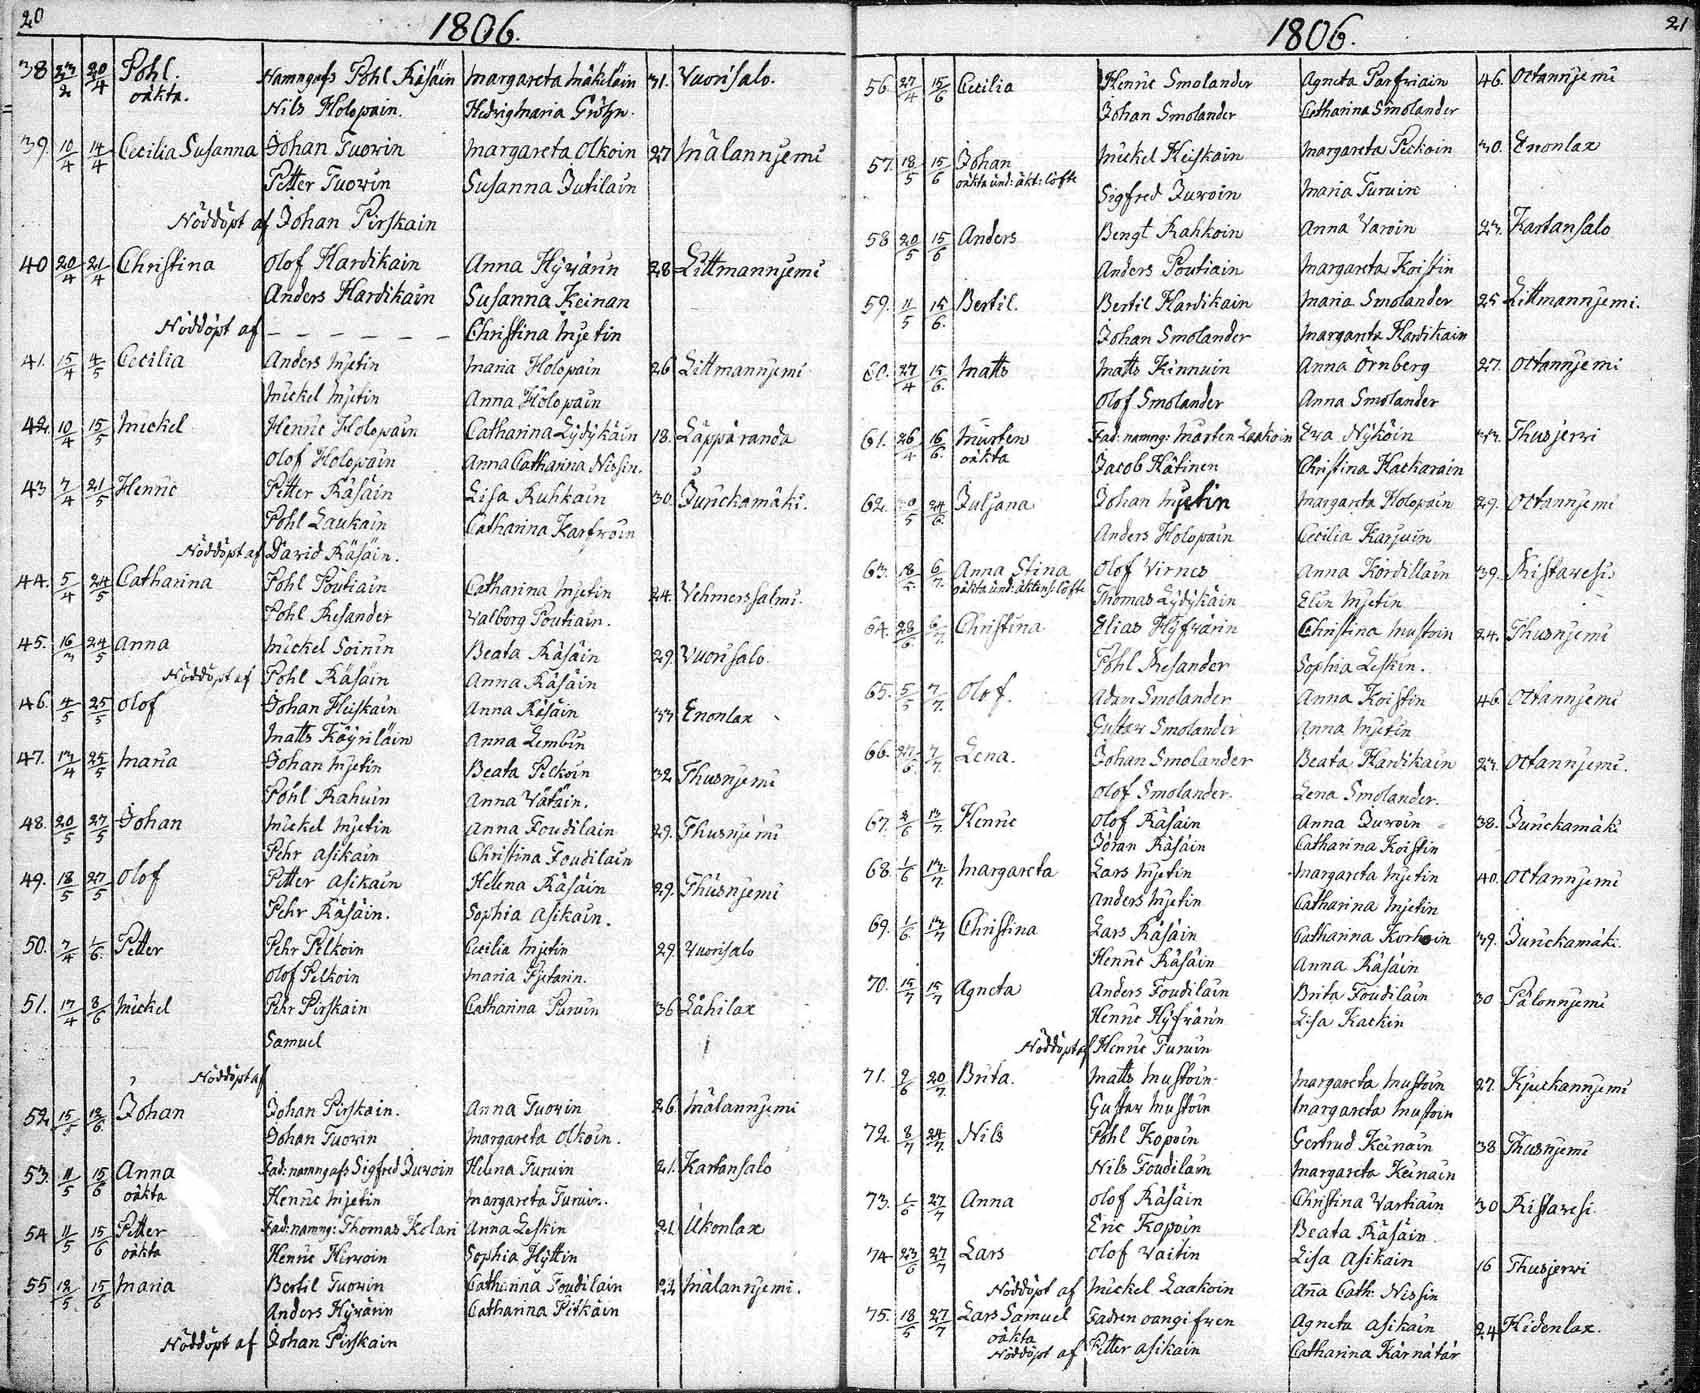 20
1806.
38 23/2 20/4 Pohl. Namngafs Pohl Räsäin Margareta Mäkeläin 31. Vuorisalo.
oäkta. Nils Holopain. Hedvig Maria Gröhn.
39. 10/4 14/4 Cecilia Susanna Johan Tuovin Margareta Olkoin 27 Mälannjemi
Petter Tuovin Susanna Jutilain
Nöddöpt af Johan Pirskain
40 20/4 21/4 Christina Olof Hardikain Anna Hyvärin 28 Littmannjemi
Anders Hardikain Susanna Keinan
Nöddöpt af – – – – – – Christina Mjetin
41. 15/4 4/5 Cecilia Anders Mjetin Maria Holopain 26 Littmannjemi
Mickel Mjetin Anna Holopain
42. 10/4 15/5 Mickel Henric Holopain Catharina Lydykäin 18. Läppäranda
Olof Holopain Anna Catharina Nissin.
43 7/4 21/5 Henric Petter Räsäin Lisa Ruhkain 30. Junckamäki.
Pohl Laukain Catharina Karfvoin
Nöddöpt af David Räsäin.
44. 5/4 24/5 Catharina Pohl Poutiain Catharina Mjetin 24. Vehmerssalmi.
Pohl Resander Valborg Poutiain.
45. 16/3 24/5 Anna Mickel Soinin Beata Räsäin 29. Vuorisalo.
Nöddöpt af Pohl Räsäin Anna Räsäin
46. 4/5 25/5 Olof Johan Heiskain Anna Räsäin 33 Enonlax
Matts Köyriläin Anna Lembin
47. 13/4 25/5 Maria Johan Mjetin Beata Pelkoin 32 Thusnjemi
Pohl Rahuin Anna Vätäin.
48. 20/5 27/5 Johan Mickel Mjetin Anna Foudilain 29. Thusnjemi
Pehr Asikain Christina Foudilain
49. 18/5 27/5 Olof Petter Asikain Helena Räsäin 29. Thusnjemi
Pehr Räsäin. Sophia Asikain.
50. 7/4 1/6. Petter Pehr Pelkoin Cecilia Mjetin 29. Vuorisalo
Olof Pelkoin Maria Pjetarin.
51. 17/4 8/6 Mickel Pehr Pirskain Catharina Puruin 36 Lähilax
Samuel
Nöddöpt af
52 15/5 12/6 Johan Johan Pirskain. Anna Tuovin 26. Mälannjemi
Johan Tuovin Margareta Olkoin.
53. 11/5 15/6 Anna Fad: namngafs Sigfred Juvoin Helena Turuin 21. Kartansalo
oäkta Henric Mjetin Margareta Turuin.
54 11/5 15/6 Petter Fad: namng: Thomas Kolari Anna Leskin 21 Ukonlax
oäkta Henric Hirvoin Sophia Hyttin
55 12/5. 15/6 Maria Bertil Tuovin Catharina Foudilain 22 Mälannjemi.
Anders Hyvärin Catharina Pitkäin
Nöddöpt af Johan Pirskain
21
1806.
56. 27/4 15/6 Cecilia Henric Smolander Agneta Parfviain 46. Octannjemi
Johan Smolander Catharina Smolander
57. 18/5 15/6 Johan Mickel Heiskain Margareta Pickain 30. Enonlax
oäkta und: äkt: löfte Sigfred Juvoin Maria Turuin
58 20/5 15/6 Anders Bengt Rahkoin Anna Varoin 23. Kartansalo
Anders Poutiain Margareta Koistin
59. 11/5 15/6. Bertil. Bertil Hardikain Maria Smolander 25 Littmannjemi.
Johan Smolander Margareta Hardikain
60. 27/4 15/6. Matts Matts Kinnuin Anna Örnberg 27. Octannjemi
Olof Smolander Anna Smolander
61. 26/4 16/6. Mårten Fad: namng: Mårten Laakoin Eva Nyköin 33. Thusjervi
oäkta Jacob Kätinen Christina Hacharain
62. 24/6. Juljana Johan Mjetin Margareta Holopain 29. Octannjemi
Anders Holopain Cecilia Karjuin
63. 6/7. Anna Stina Olof Virnes Anna Kordillain 39. Ristavesi.
oäkta und: äktensk: löfte Thomas Lydykäin Elin Mjetin
64. 28/6 6/7 Christina Elias Hyfvärin Christina Mustoin 24. Thusnjemi
Pohl Resander Sophia Leskin.
65. 5/5 7/7. Olof. Adam Smolander Anna Koistin 46. Octannjemi
Gustav Smolander Anna Mjetin
66. 27/6. 7/7. Lena. Johan Smolander Beata Hardikain 23. Octannjemi.
Olof Smolander. Lena Smolander.
67. 2/6 13/7. Henric Olof Räsäin Anna Juvoin 38. Junckamäki
Jöran Räsäin Catharina Koistin
68. 1/6 13/7 Margareta Lars Mjetin Margareta Mjetin 40. Octannjemi
Anders Mjetin Catharina Mjetin
69. 1/6. 13/7 Christina Lars Räsäin Catharina Korhoin 39. Junckamäki.
Henric Räsäin Anna Räsäin
70. 15/7 15/7 Agneta Anders Foudilain Brita Foudilain 30 Pälonnjemi
Henric Hyfvärin Lisa Kackin
Nöddöpt af Henric Turuin
71. 9/6 20/7. Brita. Matts Mustoin Margareta Mustoin 27. Kjuckannjemi
Gustav Mustoin Margareta Mustoin
72. 8/7 24/7. Nils Pohl Kopoin Gertrud Keinain 38 Thusnjemi
Nils Foudilain Margareta Keinain
73. 1/6 27/7 Anna Olof Räsäin Christina Vartiain 30 Ristavesi
Eric Kopoin Beata Räsäin.
74 23/6 27/7 Lars Olof Vaitin Lisa Asikain 16 Thusjervi
Nöddöpt af Mickel Laakoin Aña Cath: Nissin
75. 18/5 27/7 Lars Samuel Fadren oangifven Agneta Asikain 24 Hidenlax.
oäkta
Nöddöpt af Petter Asikain Catharina Kärnätär